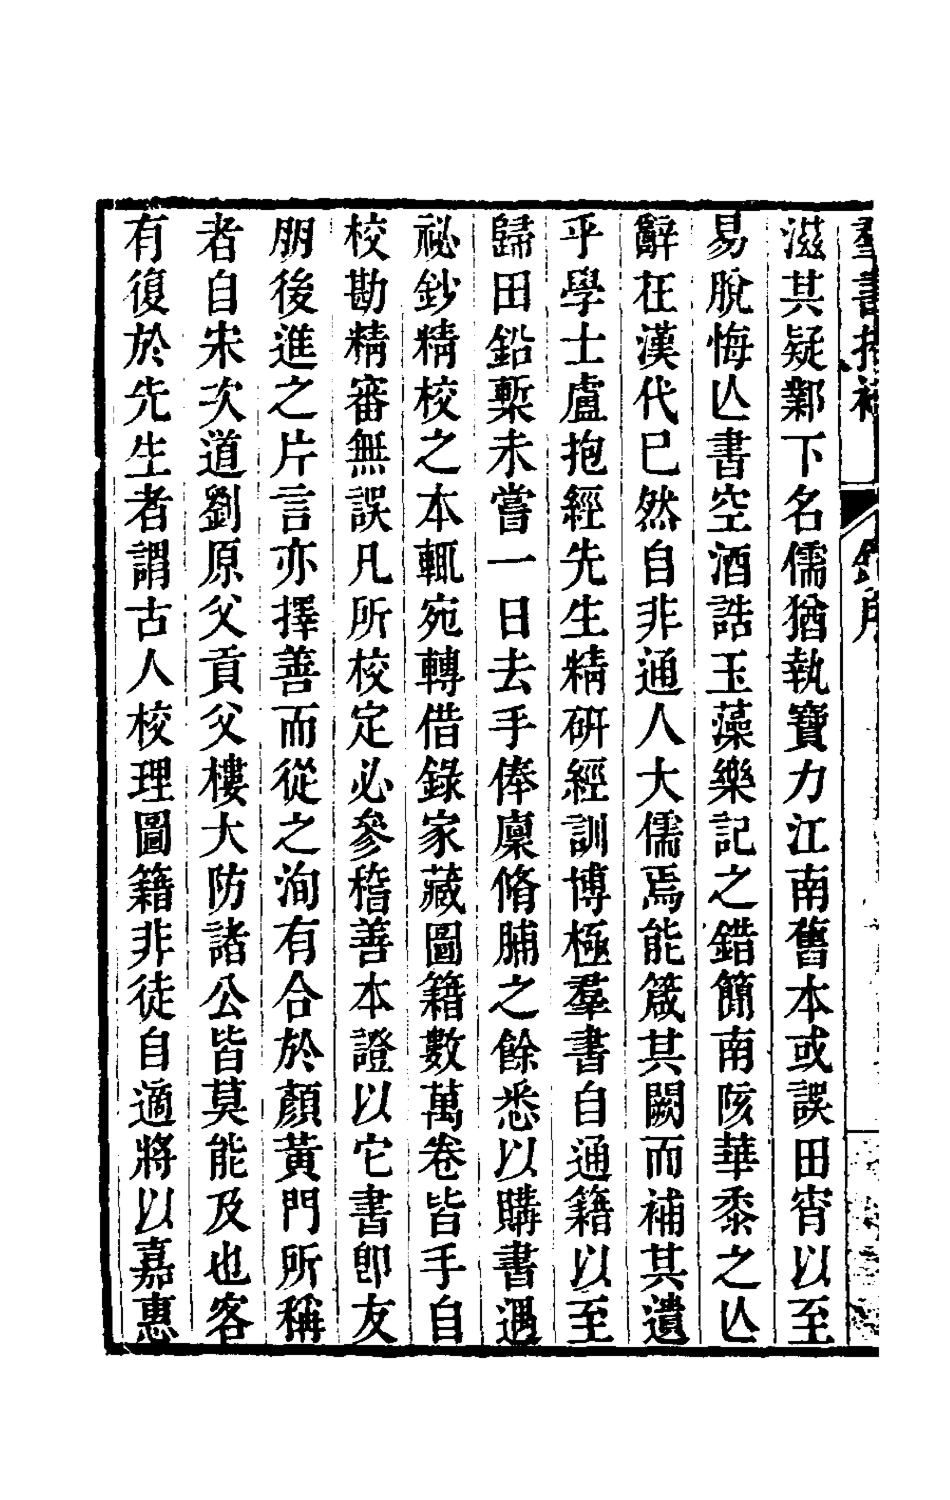 滋其疑鄴下名儒猶執寶力江南舊本或誤田宵以至
易脫悔亾書空酒誥玉藻樂記之錯簡南陔華黍之亾
辭在漢代已然自非通人大儒焉能箴其闕而補其遺
乎學士盧抱經先生精研經訓博極羣書自通籍以至
歸田鉛槧未嘗一日去手俸廩脩脯之餘悉以購書遇
祕鈔精校之本輒宛轉借錄家藏圖籍數萬卷皆手自
校勘精審無誤凡所校定必參稽善本證以它書卽友
朋後進之片言亦擇善而從之洵有合於顏黃門所稱
者自宋次道劉原父貢父樓大防諸公皆莫能及也客
有復於先生者謂古人校理圖籍非徒自適將以嘉惠